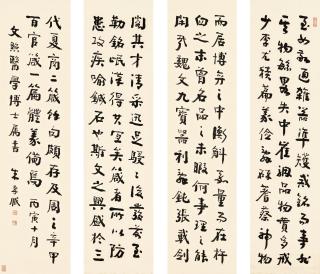 至如敬通雜器準矱戒銘而事非
其物繁略失中崔駰品物贊多戒
少李尤積篇義儉辭碎蓍龜神物
而居博弈之中衡斛嘉量而在杵
臼之末曾名品之未暇何事理之能
閑哉魏文九寶器利辭鈍張載劍
閣其才清采迅足駸駸後發前至
勒銘岷漢得其宜矣箴者所以防
患攻疾喻鍼石也斯文之興盛於三
代夏商二箴餘句頗存及周之辛甲
百官箴一篇體義備焉 丙寅十月
文煥醫學博士屬書 朱孝臧